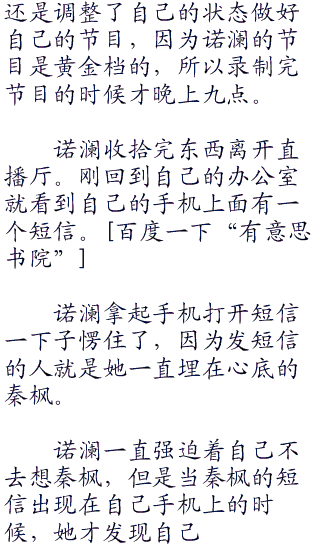 还是调整了自己的状态做好
自己的节目，因为诺澜的节
目是黄金档的，所以录制完
节目的时候才晚上九点。
诺澜收拾完东西离开直
播厅。刚回到自己的办公室
就看到自己的手机上面有一
个短信。[百度一下“有意思
书院”]
诺澜拿起手机打开短信
一下子愣住了，因为发短信
的人就是她一直埋在心底的
秦枫。
诺澜一直强迫着自己不
去想秦枫，但是当秦枫的短
信出现在自己手机上的时
候，她才发现自己